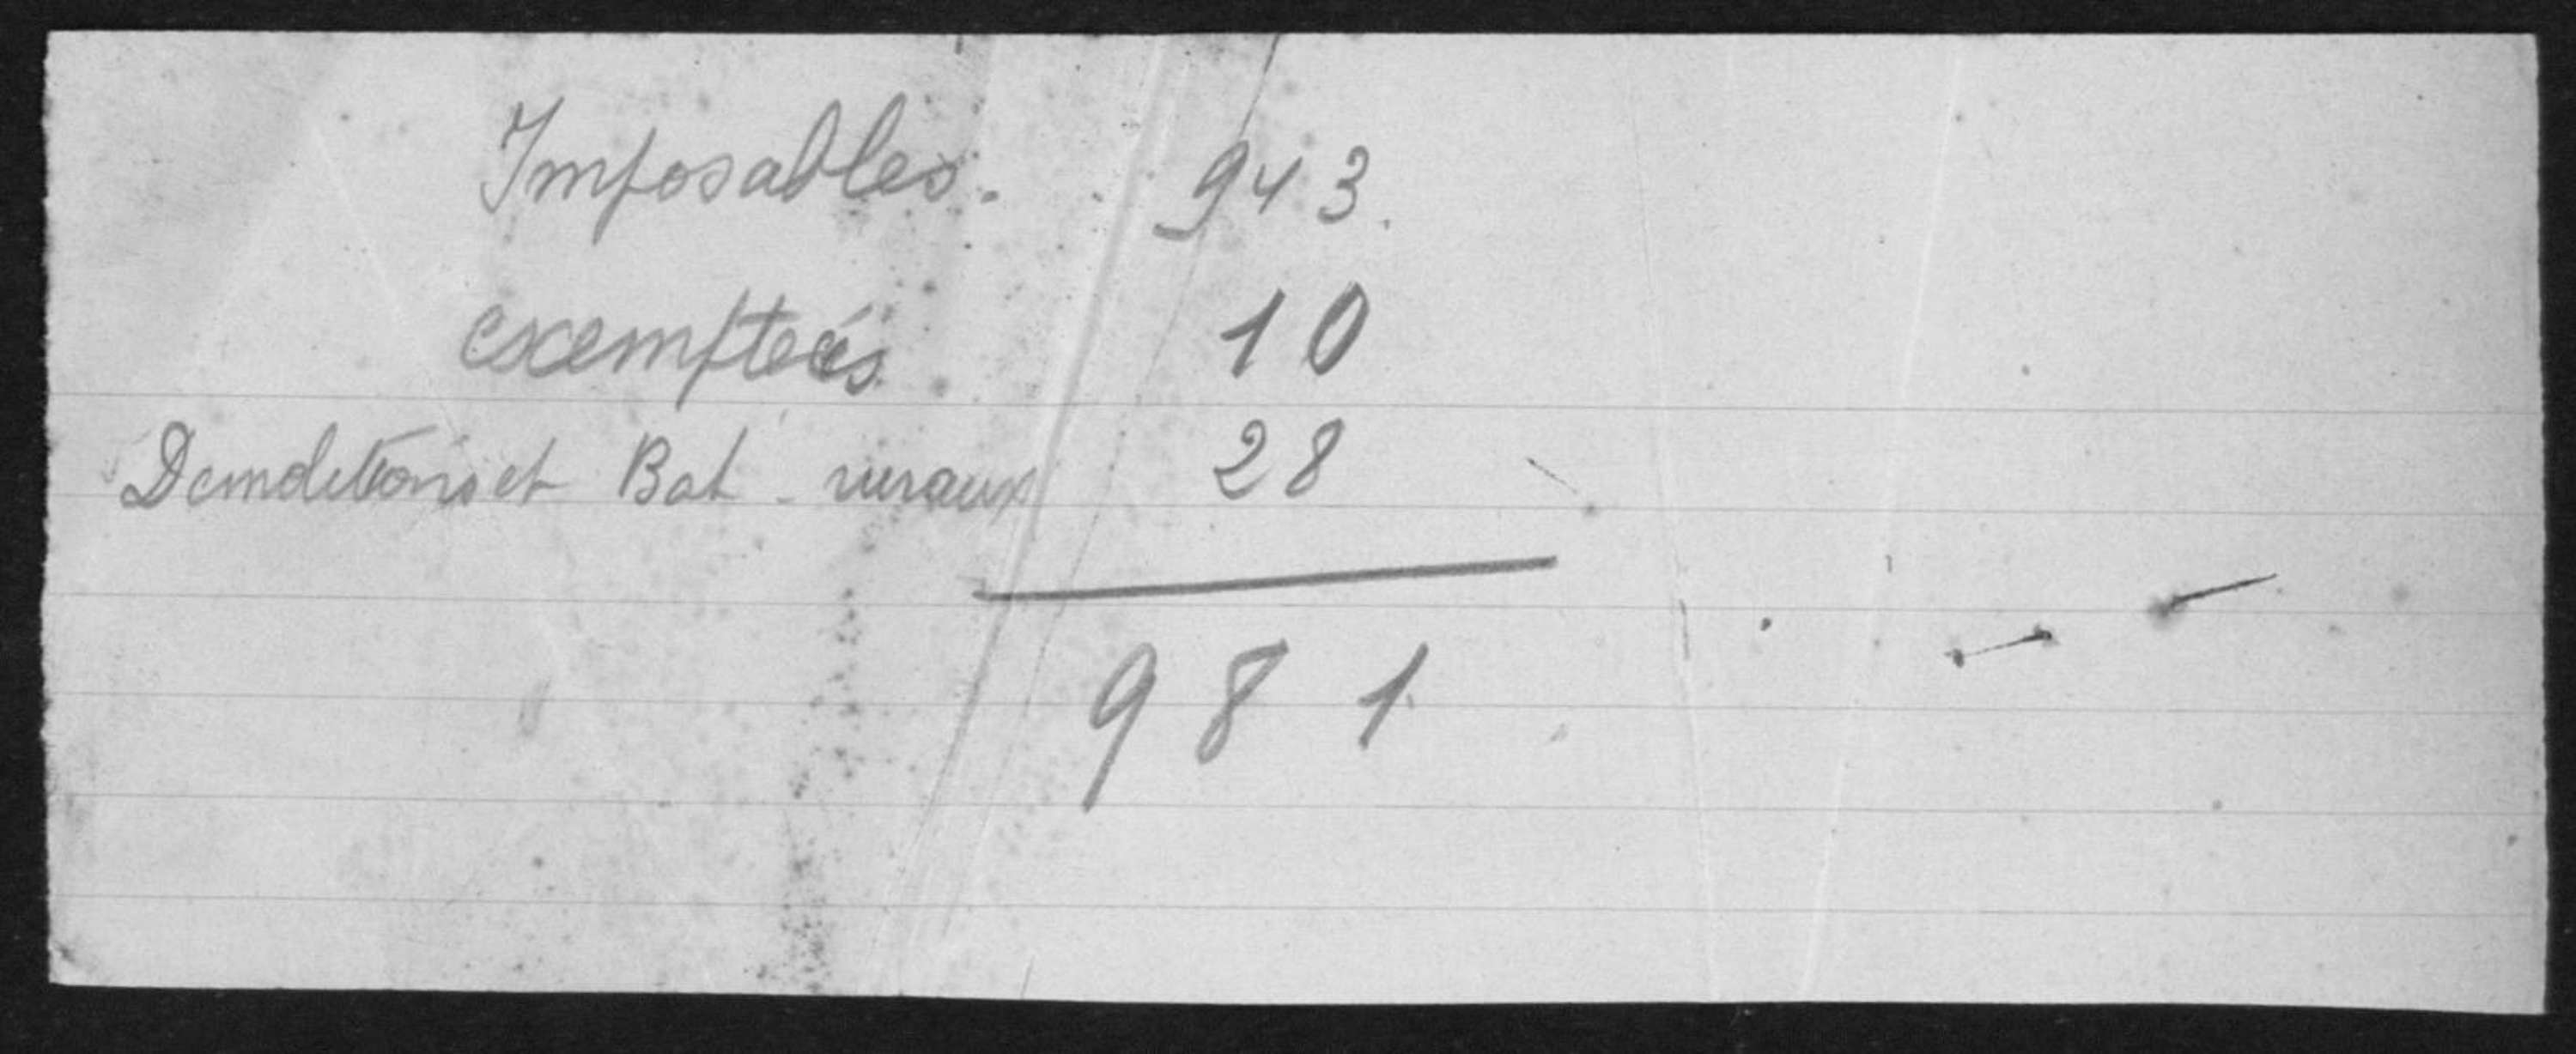 Imposables. 943.
exemptées 10
Démolitions et Bat. ruraux 28
981